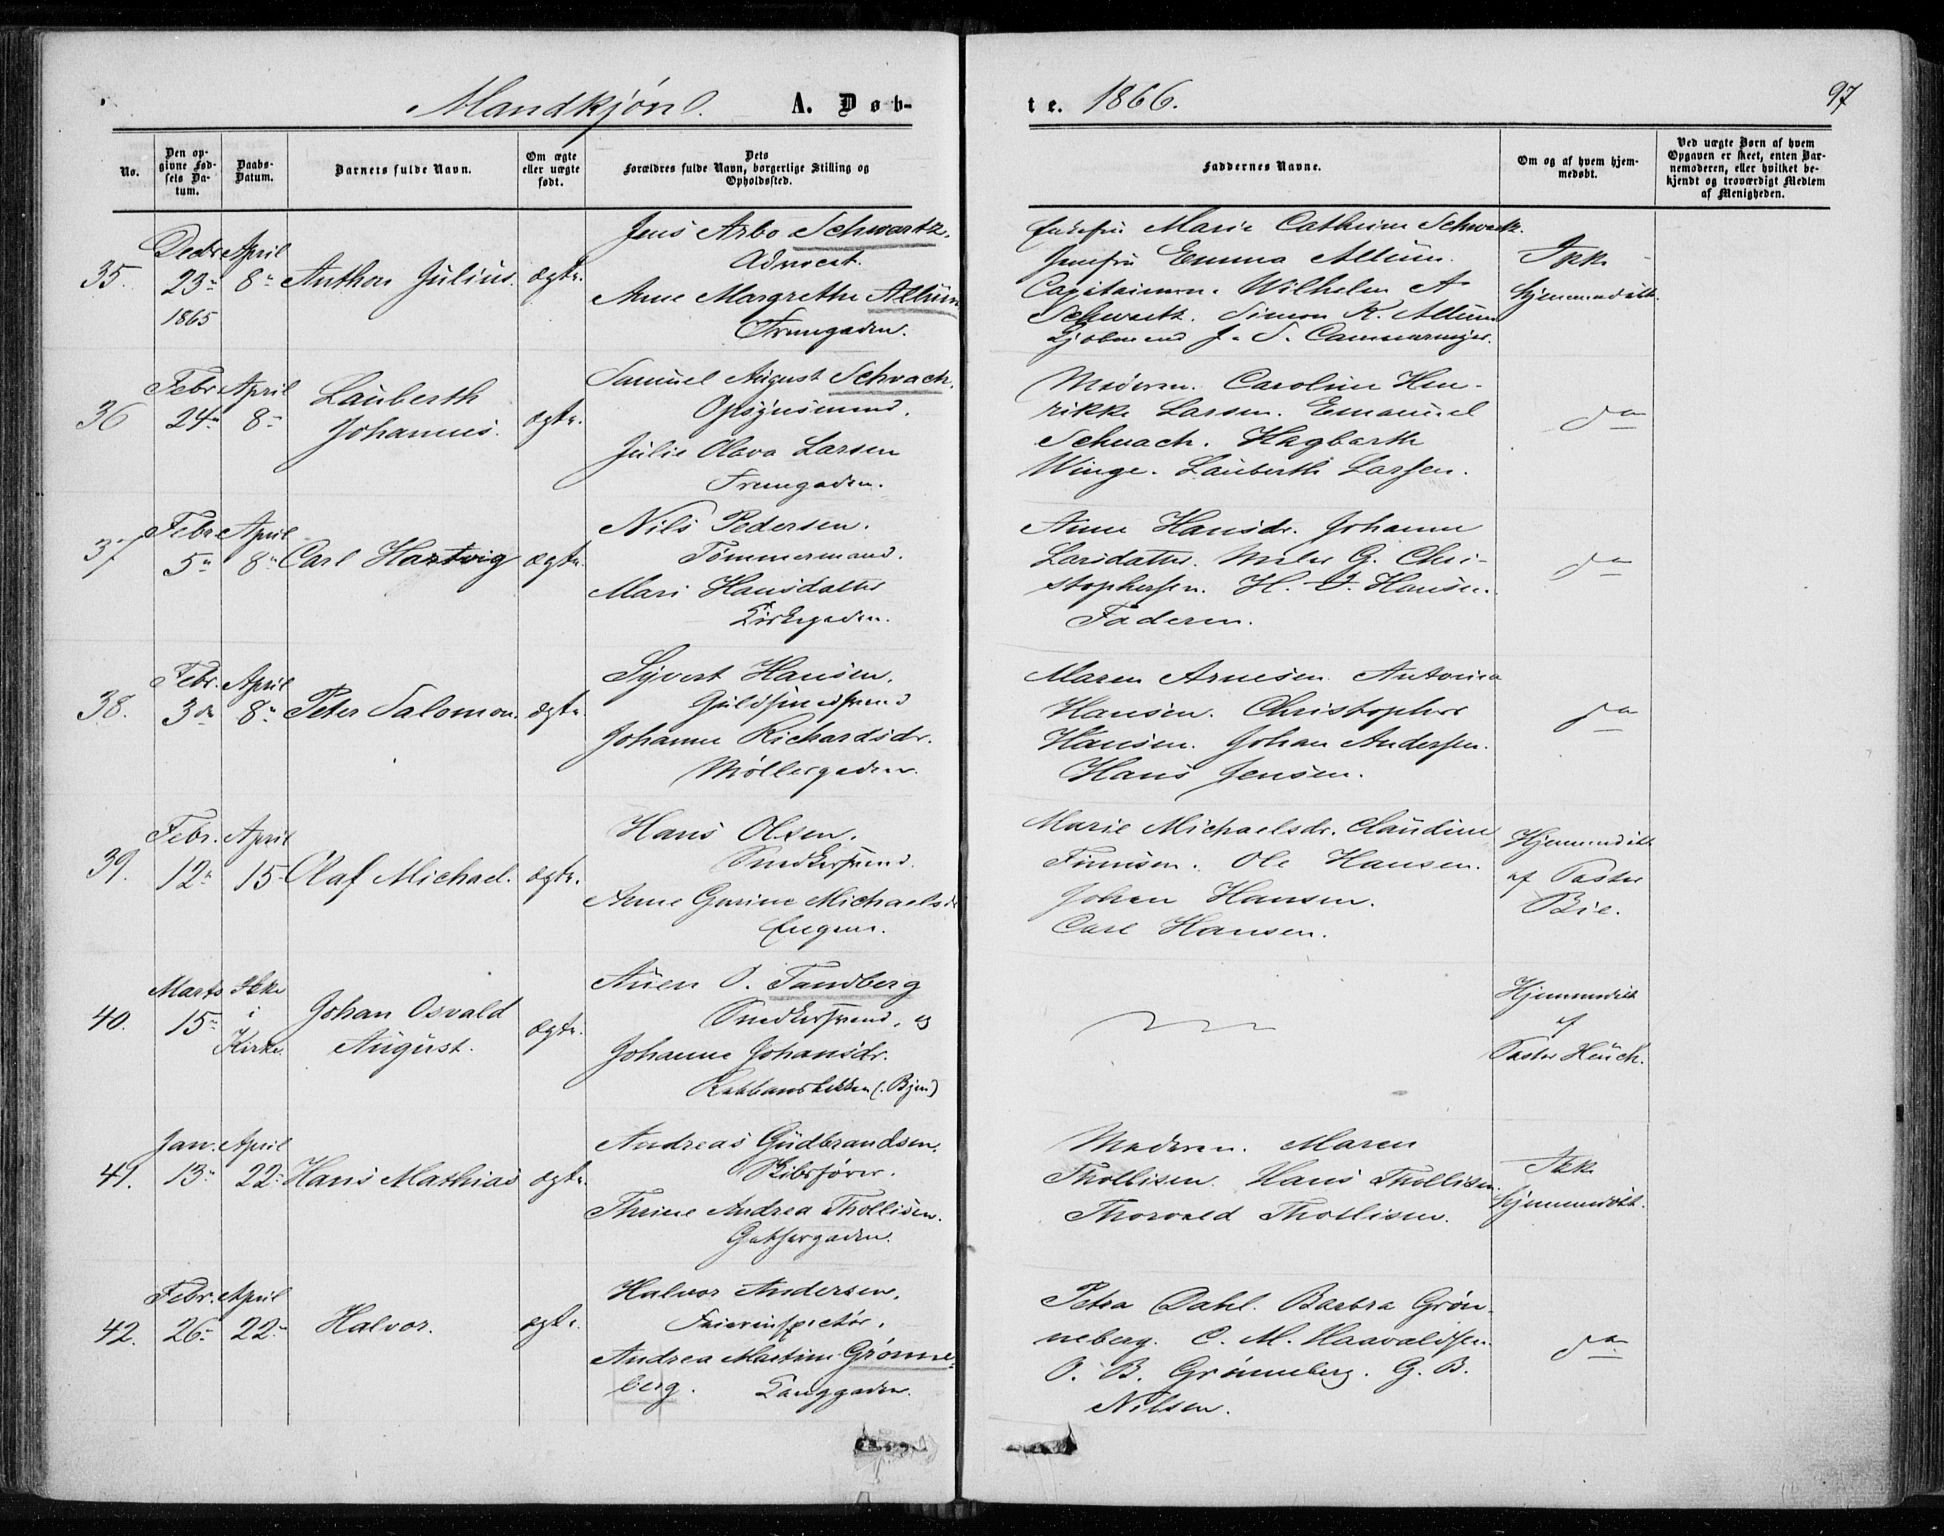 Mandkjøn. A. Døb-
No.
Den op-
givne Fød-
sels Da-
tum.
Daabs-
Datum.
Barnets fulde Navn.
Om ægte
eller uægte
født.
Dets
Forældres fulde Navn, borgerlige Stilling og
Opholdssted.
35.
Decbr
23
1865
April
8
Anthon Julius.
ægte.
Jens Arbo Schwartz.
Advocat.
Anne Margrethe Altüm
36
Febr
24
April
8
Lauberth
Johannes.
ægte.
Samuel August Schvach.
Opsynsmand.
Julie Olava Larsen
37
Febr
5
April
8
Carl Hartvig
ægte.
Nils Pedersen.
Tømmermand.
Mari Hansdatter
Kirkegaden.
38.
Febr.
3
April
8
Peter Salomon.
ægte.
Syvert Hansen.
Guldsmedsvend
Johanne Richardsdr.
Møllergaden.
39.
Febr.
12
April
15
Olaf Michael.
ægte.
Hans Olsen.
Snedkersvend.
Anne Gurine Michaelsdr
Engene.
40.
Marts
15
Ikke
i
Kirke.
Johan Osvald
August.
ægte.
Auen O. Tandberg
Snedkersvend, og
Johanne Johansdr.
(: Bjen)
41.
Jan.
13
April
22
Hans Mathias
ægte.
Andreas Gudbrandsen.
Skibsfører.
Thrine Andrea Thollisen.
42.
Febr.
26
April
22
Halvor.
ægte.
Halvor Andersen.
Andrea Martine Grønne-
berg. Langgaden.
te. 1866. 97
Faddernes Navne.
Om og af hvem hjem-
medøbt.
Ved uægte Børn af hvem
Opgaven er skeet, enten Bar-
nemoderen, eller hvilket be-
kjendt og troværdigt Medlem
af Menigheden.
Marie Cathrine Schwartz.
Jomfru Emma Altum.
Capitainen. Wilhelm A.
Schwartz. Simon K. Altum
J. S.
Ikke
hjemmedøbt.
Moderen. Caroline Hen-
rikke Larsen. Emanuel
Schvach. Hagbarth
Winge. Lauberth Larsen.
do
Anne Hansdr. Johanne
Larsdatter. G. Chri-
stophersen. H. J. Hansen.
Faderen.
do
Maren Arnesen. Antonica
Hansen. Christopher
Hansen. Johan Andersen.
Hans Jensen.
do
Marie Michaelsdr. Claudine
Ole Hansen.
Johan Hansen.
Carl Hansen.
Hjemmedøbt
af Pastor
Bie.
Hjemmedøbt
af
Pastor Heuch.
Moderen. Maren
Thollisen. Hans Thollisen.
Thorvald Thollisen.
Ikke
hjemmedøbt.
Petra Dahl. Barbra Grøn-
neberg. C. M. Haavaldsen.
O. B. Grønneberg. G. B.
Nilsen.
do